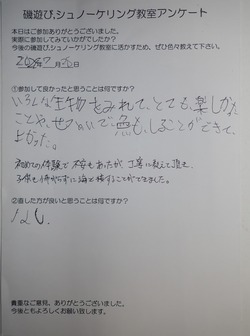 磯遊び,シュノーケリング教室アンケート
本日はご参加ありがとうございました。
実際に参加してみていかがでしたか?
今後の磯遊び,シュノーケリング教室に活かすため、ぜひ色々教えて下さい。
年7月 日
①参加して良かったと思うことは何ですか?
いろんな生物もみれて、とても、楽しかた
ことや、せつめいで魚も、しることができて、
よかった。
初めての体験で不安もあったが、丁寧に教えて頂き、
子供も怖がらずに海と接することができました。
②直した方が良いと思うことは何ですか?
なし
貴重なご意見、ありがとうございました。
今後ともよろしくお願い致します。